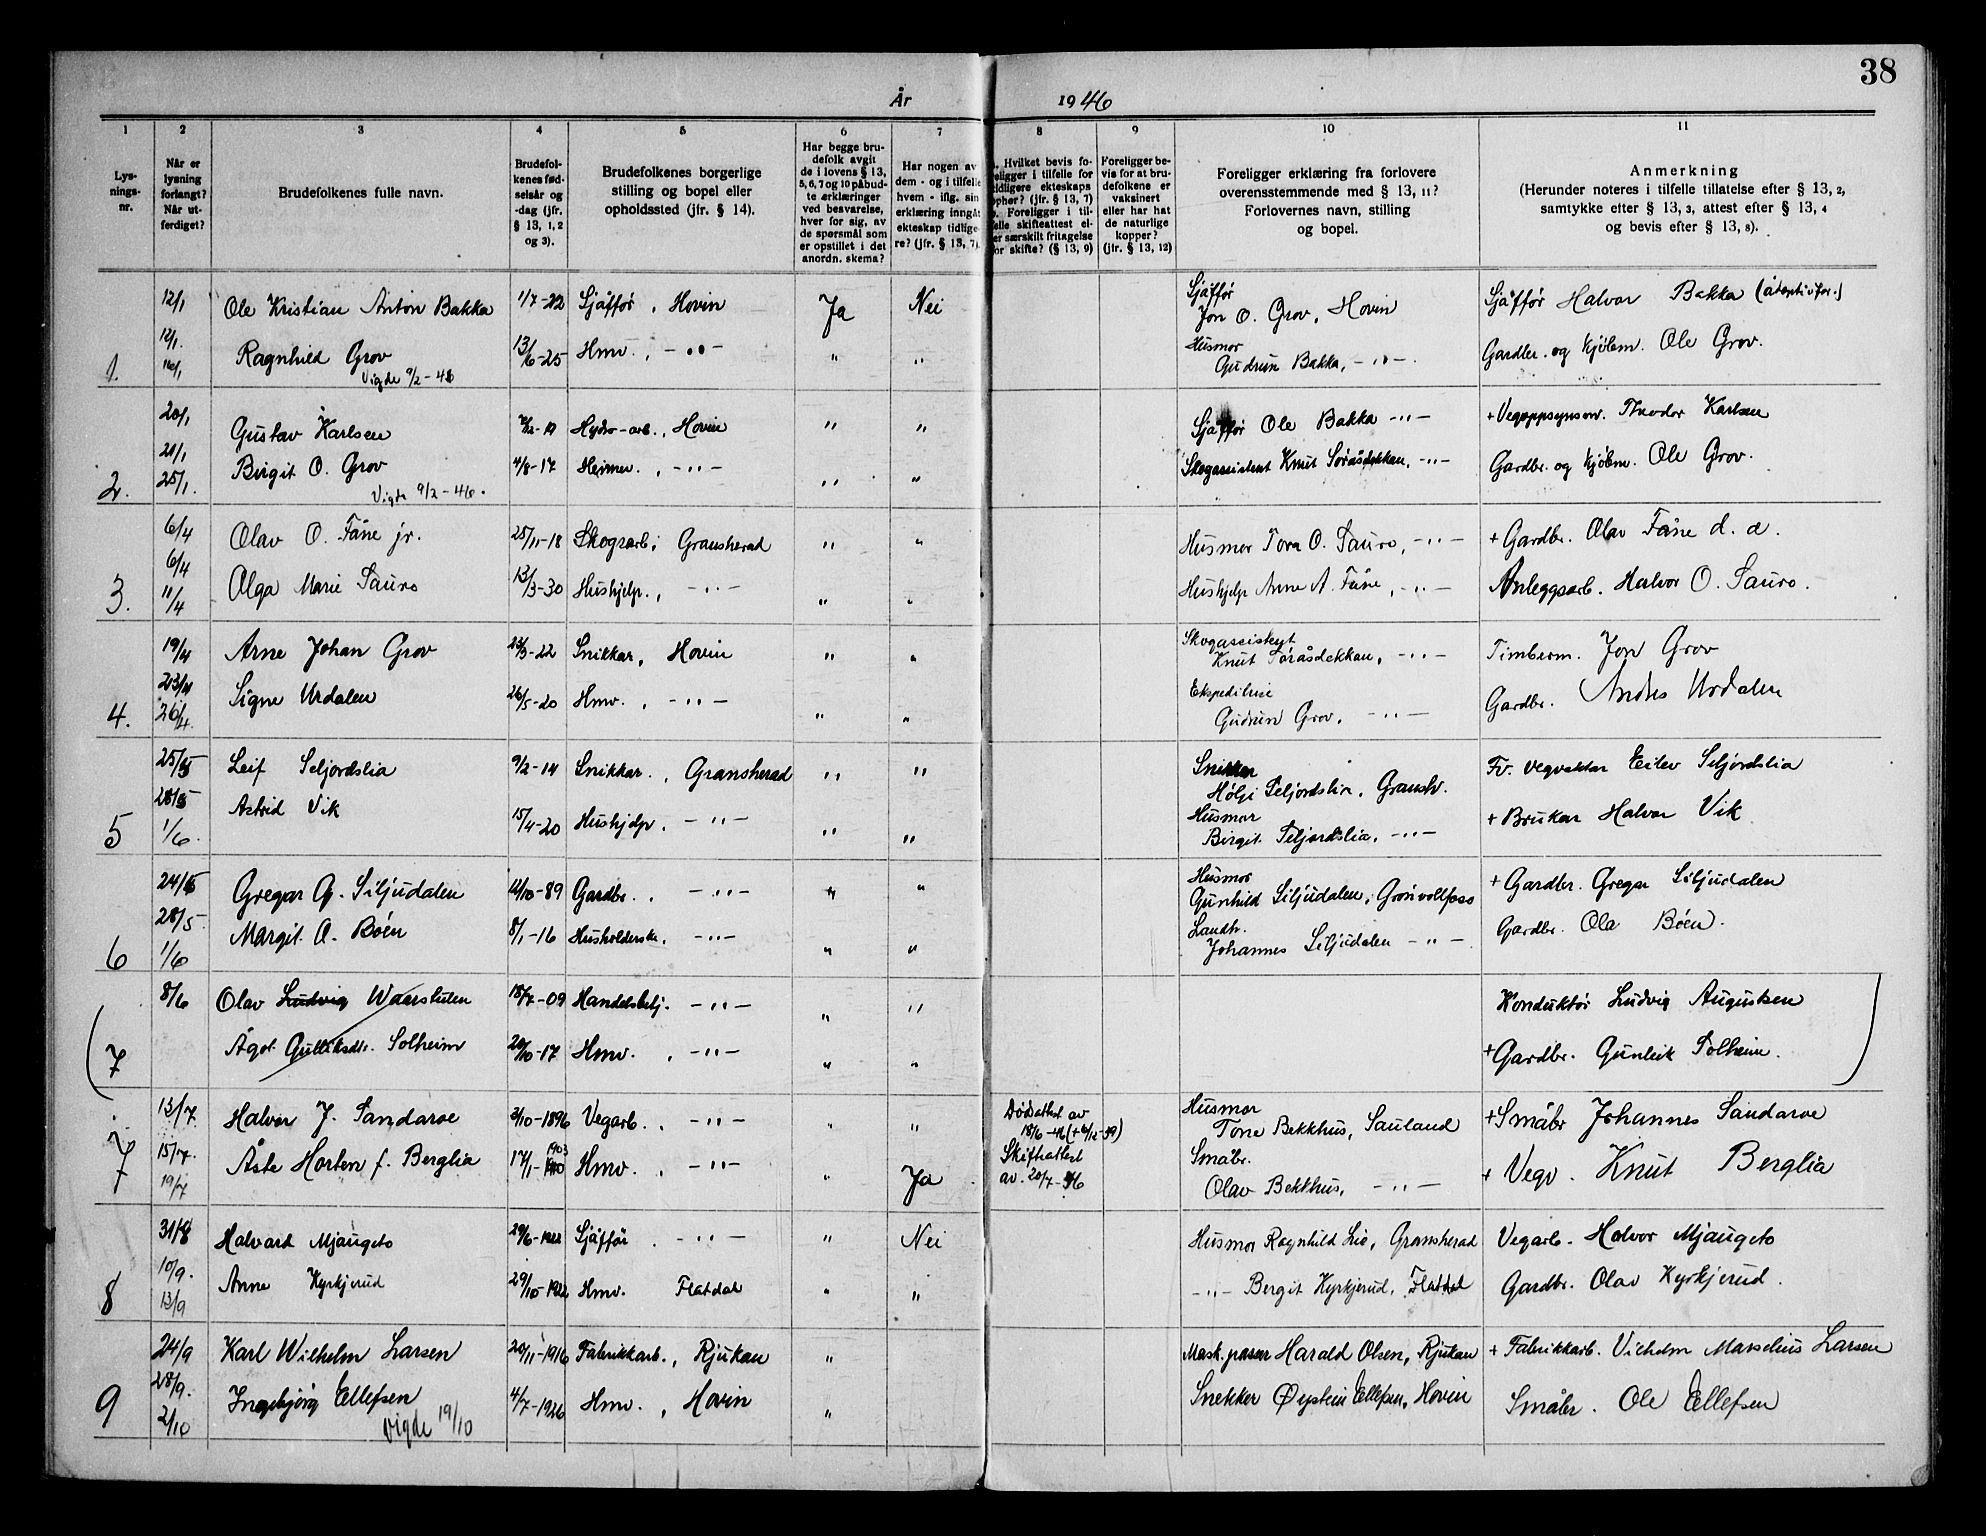 38
År 1946
1 2 3 4 5 6 7 8 9 10 11
Lys-
nings-
nr.
Når er
lysning
forlangt?
Når ut-
ferdiget?
Brudefolkenes fulle navn.
Brudefol-
kenes fød-
selsår og
-dag (jfr.
§ 13, 1, 2
og 3).
Brudefolkenes borgerlige
stilling og bopel eller
opholdssted (jfr. § 14).
Har begge bru-
defolk avgit
de i lovens § 13,
5, 6, 7 og 10 påbud-
te erklæringer
ved besvarelse,
hver for sig, av
de spørsmål som
er opstillet i det
anordn. skema?
Har nogen av
dem - og i tilfelle
hvem - iflg. sin
erklæring inngåt
ekteskap tidlige-
re? (jfr. § 13, 7).
Hvilket bevis fo-
religger i tilfelle for
tidligere ekteskaps
ophør? (jfr. § 13, 7)
Foreligger i til-
felle skifteattest el-
ler særskilt fritagelse
for skifte? (§ 13, 9)
Foreligger be-
vis for at bru-
defolkene er
vaksinert
eller har hat
de naturlige
kopper?
(jfr. § 13, 12)
Foreligger erklæring fra forlovere
overensstemmende med § 13, 11?
Forlovernes navn, stilling
og bopel.
Anmerkning
(Herunder noteres i tilfelle tillatelse efter § 13, 2,
samtykke efter § 13, 3, attest efter § 13, 4
og bevis efter § 13, 8).
1. 12/1 Ole Kristian Anton Bakka 1/7-22 Sjåffør, Hovin Ja Nei Sjåffør Jon O. Grov, Hovin Sjåffør Halvor Bakka (adoptivfar.)
12/1. 16/1 Ragnhild Grov 13/6-25 Hmv., -"- " " Husmor Gudrun Bakka, -"- Gardbr. og kjølem. Ole Grov.
Vigde 9/2-46
2. 20/1 Gustav Karlsen Hydro-arb., Hovin " " Sjåffør Ole Bakka -"- + Vegoppsynsm. Theodor Karlsen
21/1 25/1. Birgit O. Grov 4/8-17 Heimev., -"- " " Skogassistent Knut Toråsdekkan, -"- Gardbr. og kjølem. Ole Grov.
Vigde 9/2-46.
3. 6/4 Olav O. Fåne jr. 25/11-18 Skogsarb., Gransherad " " Husmor Tora O. Sauro, -"- + Gardbr. Olav Fåne d. e.
6/4 11/4 Olga Marie Sauro 13/3-30 Hushjelp., -"- " " Hushjelp Anne A. Fåne, -"- Anleggsarb. Halvor O. Sauro.
4. 19/4 Arne Johan Grov 23/3-22 Snikkar, Hovin " " Skogassistent Knut Toråsdekkan, -"- Timberm. Jon Grov
23/4 26/4. Signe Urdalen 26/5-20 Hmv., -"- " " Ekspeditrise Gudrun Grov, -"- Gardbr. Andres Urdalen
5 25/5 Leif Seljordslia 9/2-14 Snikkar., Gransherad " " Snikkar Høljе Seljordslia, Gransh. Fv. vegvaktar Eilev Seljordslia
28/5 1/6. Astrid Vik 15/4-20 Hushjelp, -"- " " Husmor Birgit Seljordslia, -"- + Brukar Halvor Vik
6 24/5 Gregar G. Siljudalen 12/10-89 Gardbr., -"- " " Husmor Gunhild Siljudalen, Grønvollfoss + Gardbr. Gregar Siljudalen
28/5. 1/6 Margit O. Bøen 8/1-16 Husholderske, -"- " " Landh. Johannes Siljudalen -"- Gardbr. Ola Bøen.
(7 8/6 Olav Ludvig Waarstulen 18/7-09 Handelsbetj. -"- " " Konduktør Ludvig Augustsen
Ågot Gulliksdtr. Solheim 20/10-17 Hmv., -"- " " + Gardbr. Gunleik Solheim.)
7 13/7. Halvor J. Sandaroe 3/10-1896 Vegarb. -"- " " Dødsattest av 18/6-46 (+6/12-39) Husmor Tone Bekkhus, Sauland + Småbr Johannes Sandaroe
15/7. 19/7 Åste Horten f. Berglia 17/1-1903 Hmv., -"- " Ja Skifteattest av. 20/7-46 Småbr. Olav Bekkhus, -"- + Vegv. Knut Berglia
8 31/8 Halvard Mjaugeto 29/6-1922 Sjåffør. -"- " Nei Husmor Ragnhild Lie, Gransherad Vegarb. Halvor Mjaugeto
10/9. 13/9 Anne Kyrkjerud 29/10-1922 Hmv. Flatdal " " -"- Bergit Kyrkjerud, Flatdal Gardbr. Olav Kyrkjerud.
9 24/9 Karl Wilhelm Larsen 20/11-1916 Fabrikkarb., Rjukan " Mask.passer Harald Olsen, Rjukan + Fabrikkarb. Vilhelm Marselius Larsen
28/9. 2/10 Ingebjørg Ellefsen 4/7-1926 Hmv., Hovin " Snekker Øystein Ellefsen, Hovin Småbr. Ole Ellefsen
vigde 19/10